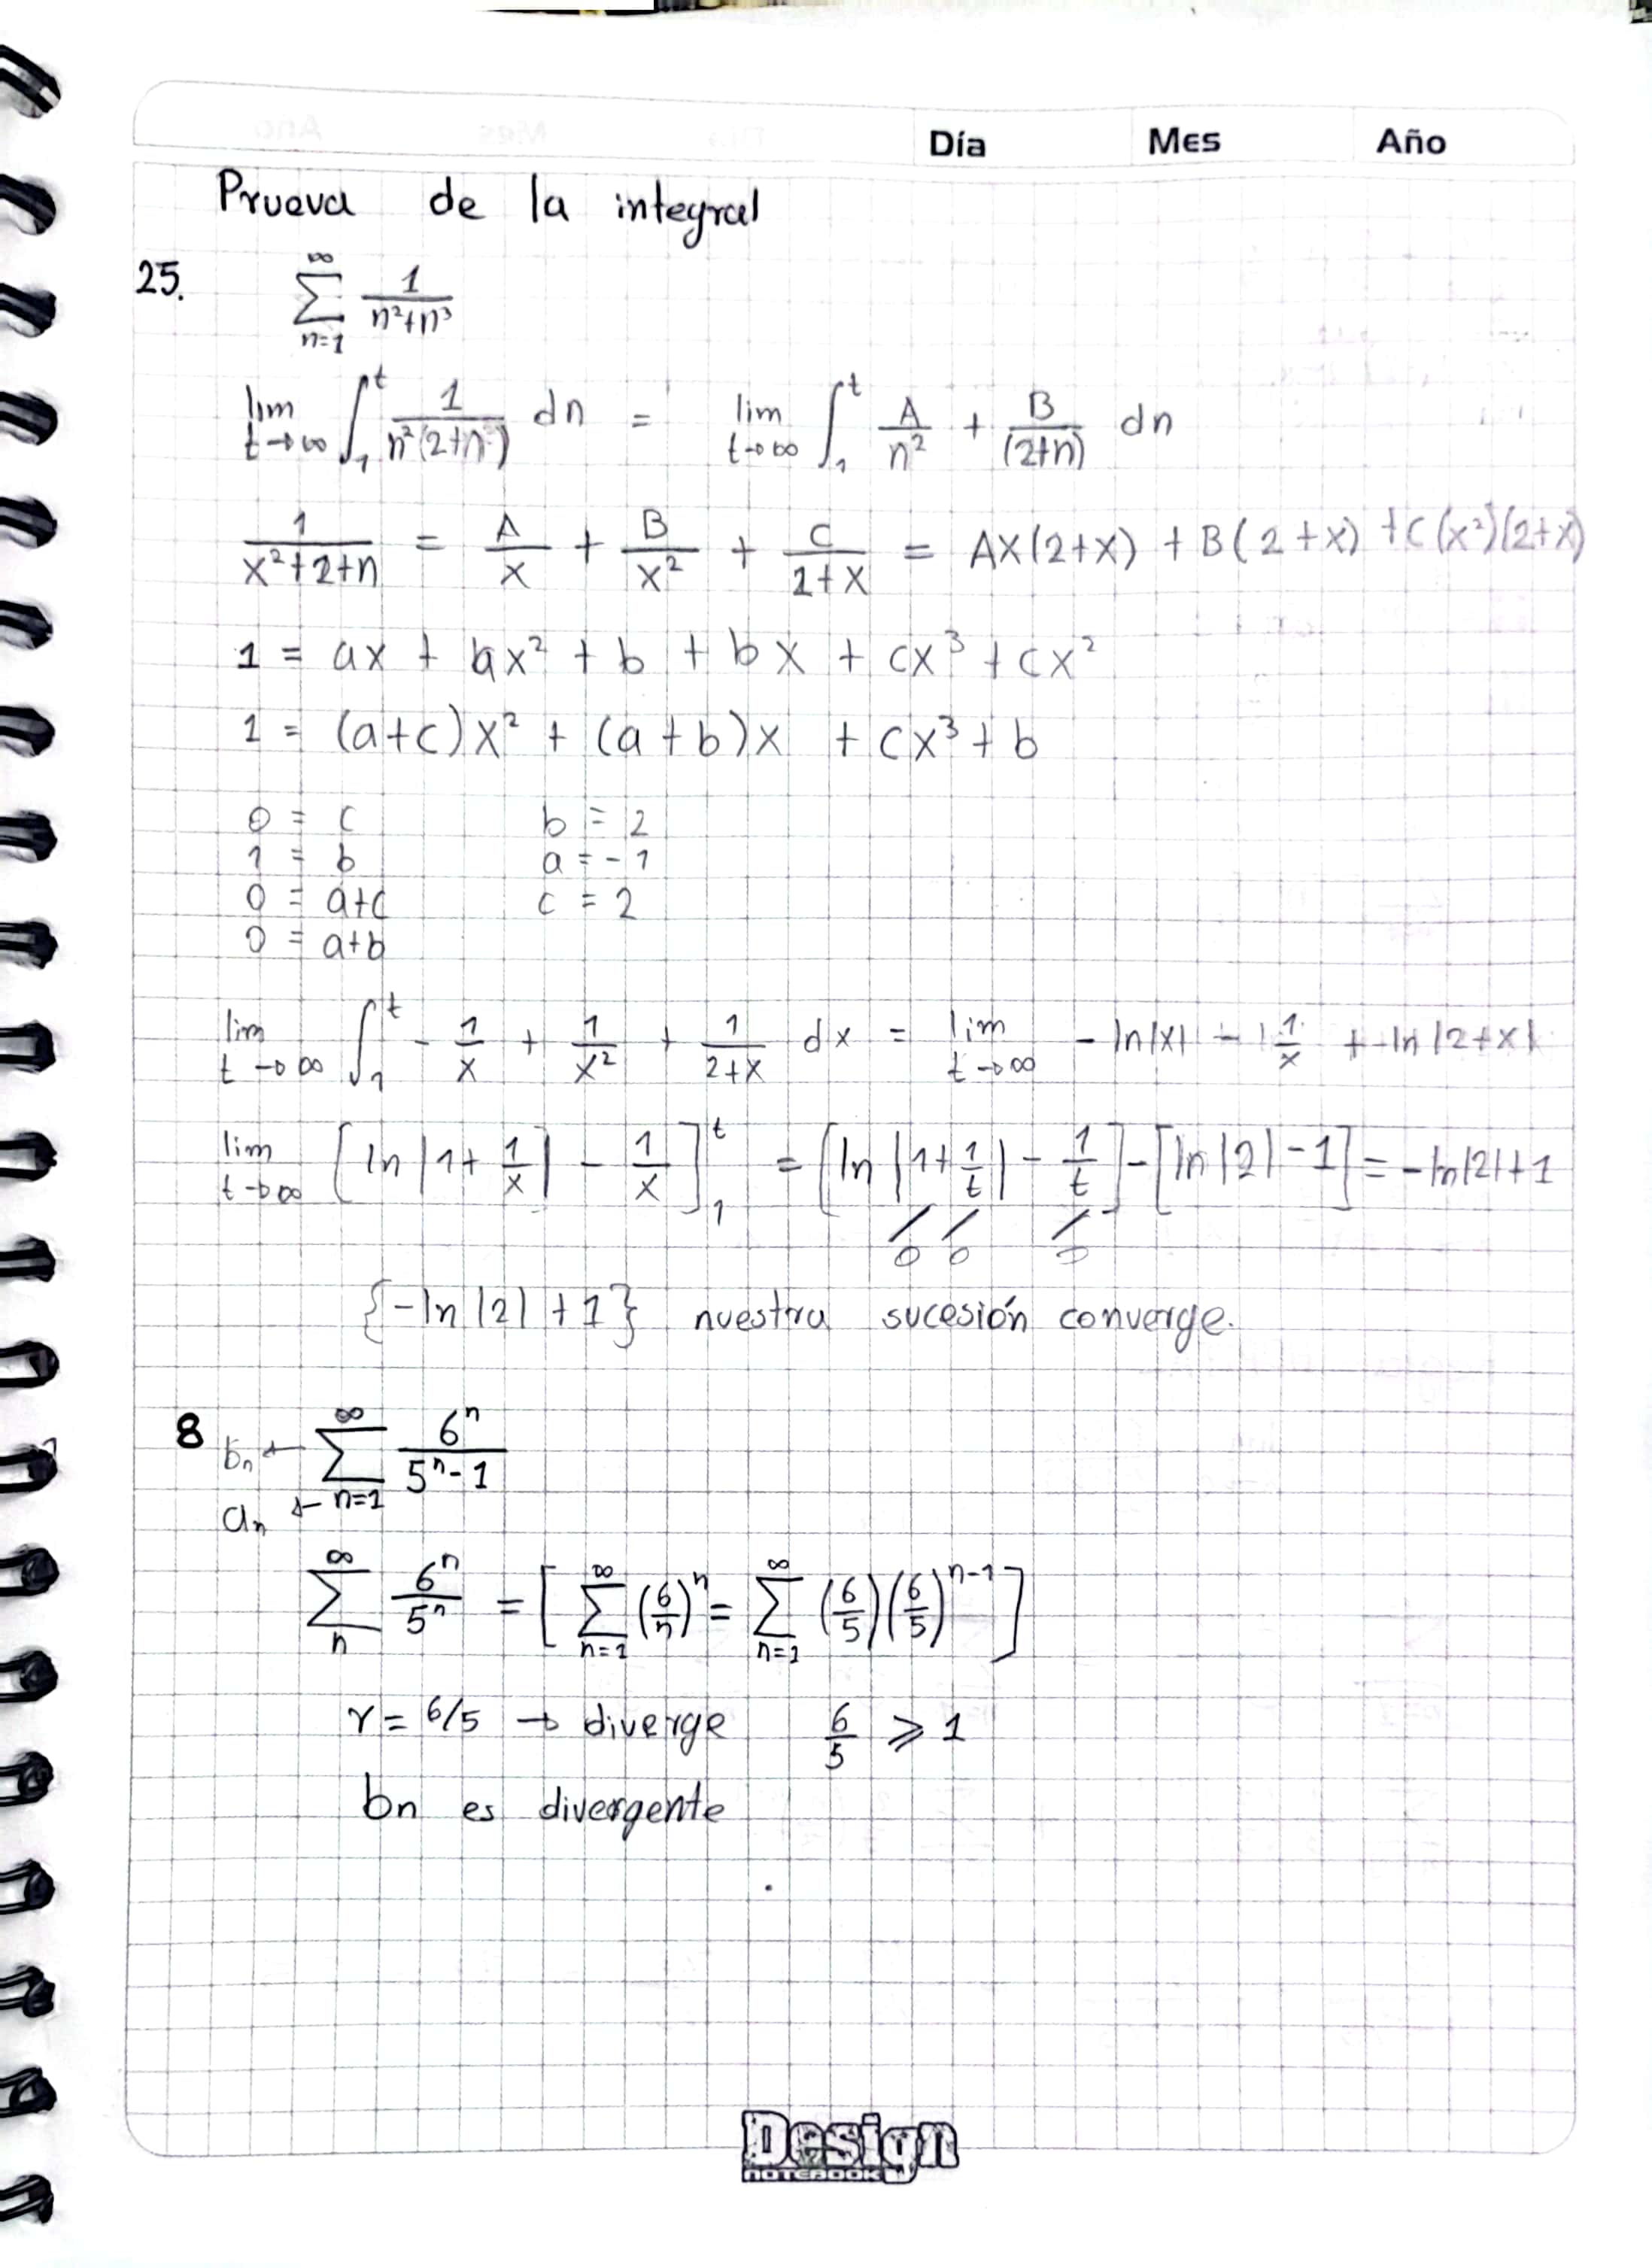 Día Mes Año
Prueva de la integral
25. ∑_{n=1}^{∞} 1/(n²+n³)
lim_{t→∞} ∫_1^t 1/(n²(2+n)) dn = lim_{t→∞} ∫_1^t A/n² + B/(2+n) dn
1/(x²+2+n) = A/x + B/x² + C/(2+x) = AX(2+x) + B(2+x) + C(x²)(2+x)
1 = ax + ax² + b + bx + cx³ + cx²
1 = (a+c)x² + (a+b)x + cx³ + b
0 = c b = 2
1 = b a = -1
0 = a+c c = 2
0 = a+b
lim_{t→∞} ∫_1^t - 1/x + 1/x² + 1/(2+x) dx = lim_{t→∞} - ln|x| - 1/x + ln|2+x|
lim_{t→∞} [ln|1+1/x| - 1/x]_1^t = [ln|1+1/t| - 1/t] - [ln|2| - 1] = -ln|2|+1
0 0 0
{-ln|2|+1} nuestra sucesión converge.
8 bn ← ∑_{n=1}^{∞} 6ⁿ/(5ⁿ-1)
an ←
∑_n^{∞} 6ⁿ/5ⁿ = [∑_{n=1}^{∞} (6/n)ⁿ = ∑_{n=1}^{∞} (6/5)(6/5)^{n-1}]
r = 6/5 → diverge 6/5 ⩾ 1
bn es divergente
Design
NOTEBOOK